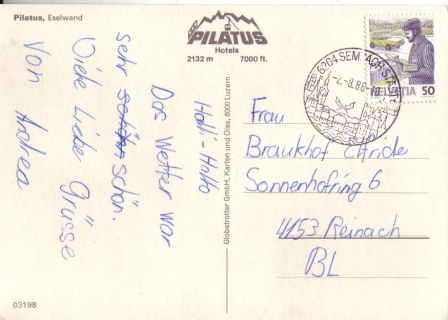 Pilatus, Eselwand
PILATUS
Hotels
2132 m 7000 ft.
Halli-Hallo
Das Wetter war
sehr schön.
Viele Liebe Grüsse
Von Andrea
Globetrotter GmbH, Karten und Dies, 6000 Luzern
6204 SEMPACH STADT
-2.-8.88-
HELVETIA 50
Frau
Braukhof
Sonnenhofring 6
4153 Reinach
BL
03198